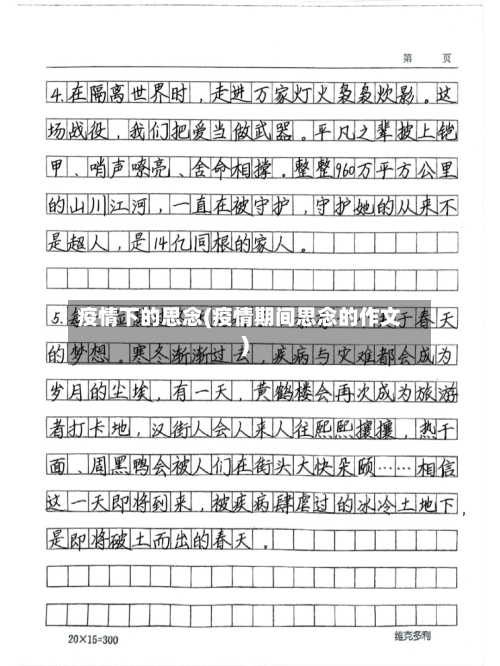 第 页
4.在隔离世界时，走进万家灯火袅袅炊影。这
场战役，我们把爱当做武器。平凡之辈披上铠
甲、哨声嘹亮、舍命相撑。整整960万平方公里
的山川江河，一直在被守护，守护她的从来不
是超人，是14亿同根的家人。
疫情下的思念(疫情期间思念的作文
)
5.
于春天
的梦想。寒冬渐渐过去，疾病与灾难都会成为
岁月的尘埃，有一天，黄鹤楼会再次成为旅游
者打卡地，汉街人会人来人往熙熙攘攘，热干
面、周黑鸭会被人们在街头大快朵颐……相信
这一天即将到来，被疾病肆虐过的冰冷土地下，
是即将破土而出的春天。
20×15=300
维克多利